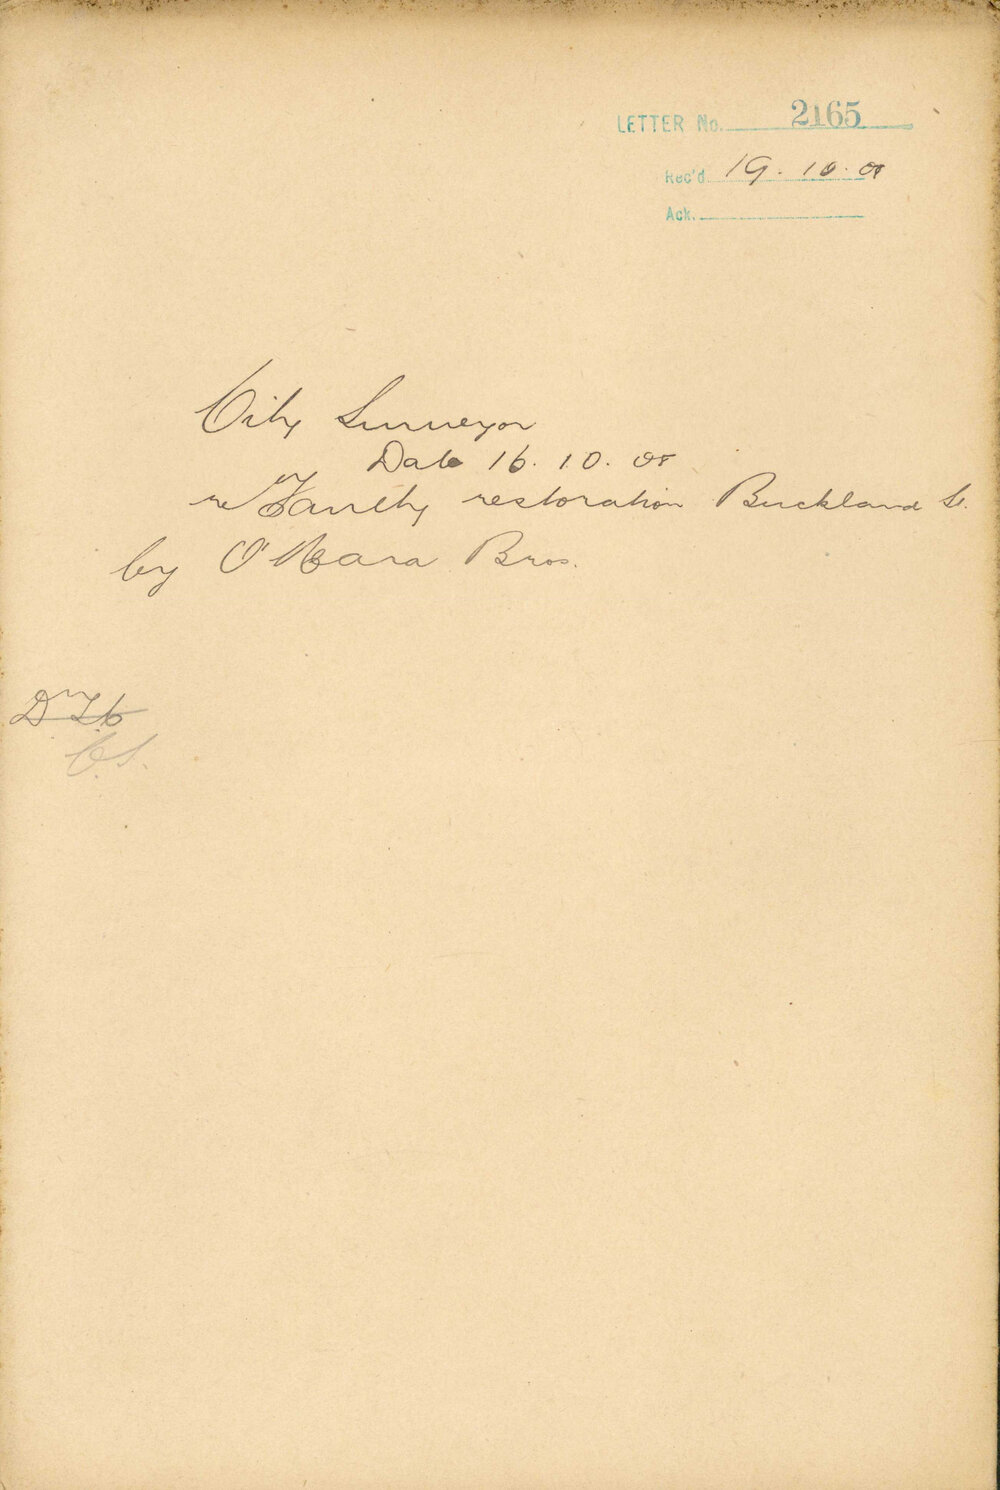 LETTER No. 2165
Rec'd. 19.10.08
Ack.
City Surveyor
Date 16.10.08
re Faulty restoration Buckland St.
by O'Meara Bros.
C.S.